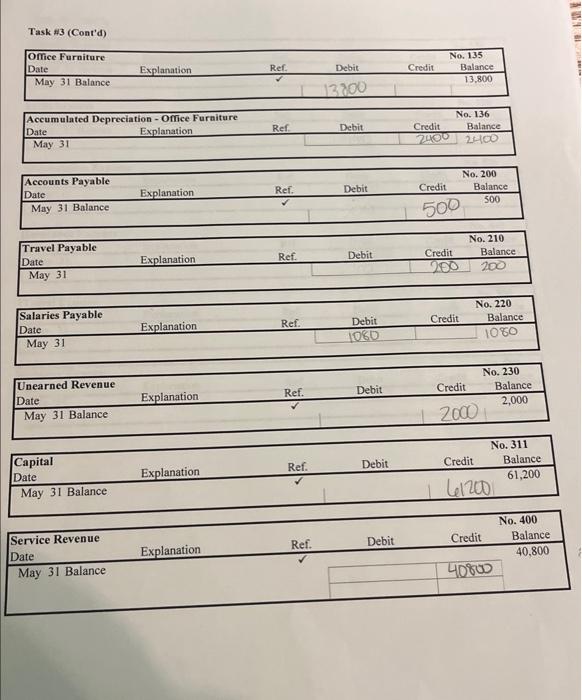 Task #3 (Cont'd)
Office Furniture No. 135
Date Explanation Ref. Debit Credit Balance
May 31 Balance ✓ 13,800
13800
Accumulated Depreciation - Office Furniture No. 136
Date Explanation Ref. Debit Credit Balance
May 31 2400 2400
Accounts Payable No. 200
Date Explanation Ref. Debit Credit Balance
May 31 Balance ✓ 500 500
Travel Payable No. 210
Date Explanation Ref. Debit Credit Balance
May 31 200 200
Salaries Payable No. 220
Date Explanation Ref. Debit Credit Balance
May 31 1080 1080
Unearned Revenue No. 230
Date Explanation Ref. Debit Credit Balance
May 31 Balance ✓ 2,000
2000
Capital No. 311
Date Explanation Ref. Debit Credit Balance
May 31 Balance ✓ 61,200
61200
Service Revenue No. 400
Date Explanation Ref. Debit Credit Balance
May 31 Balance ✓ 40,800
40800